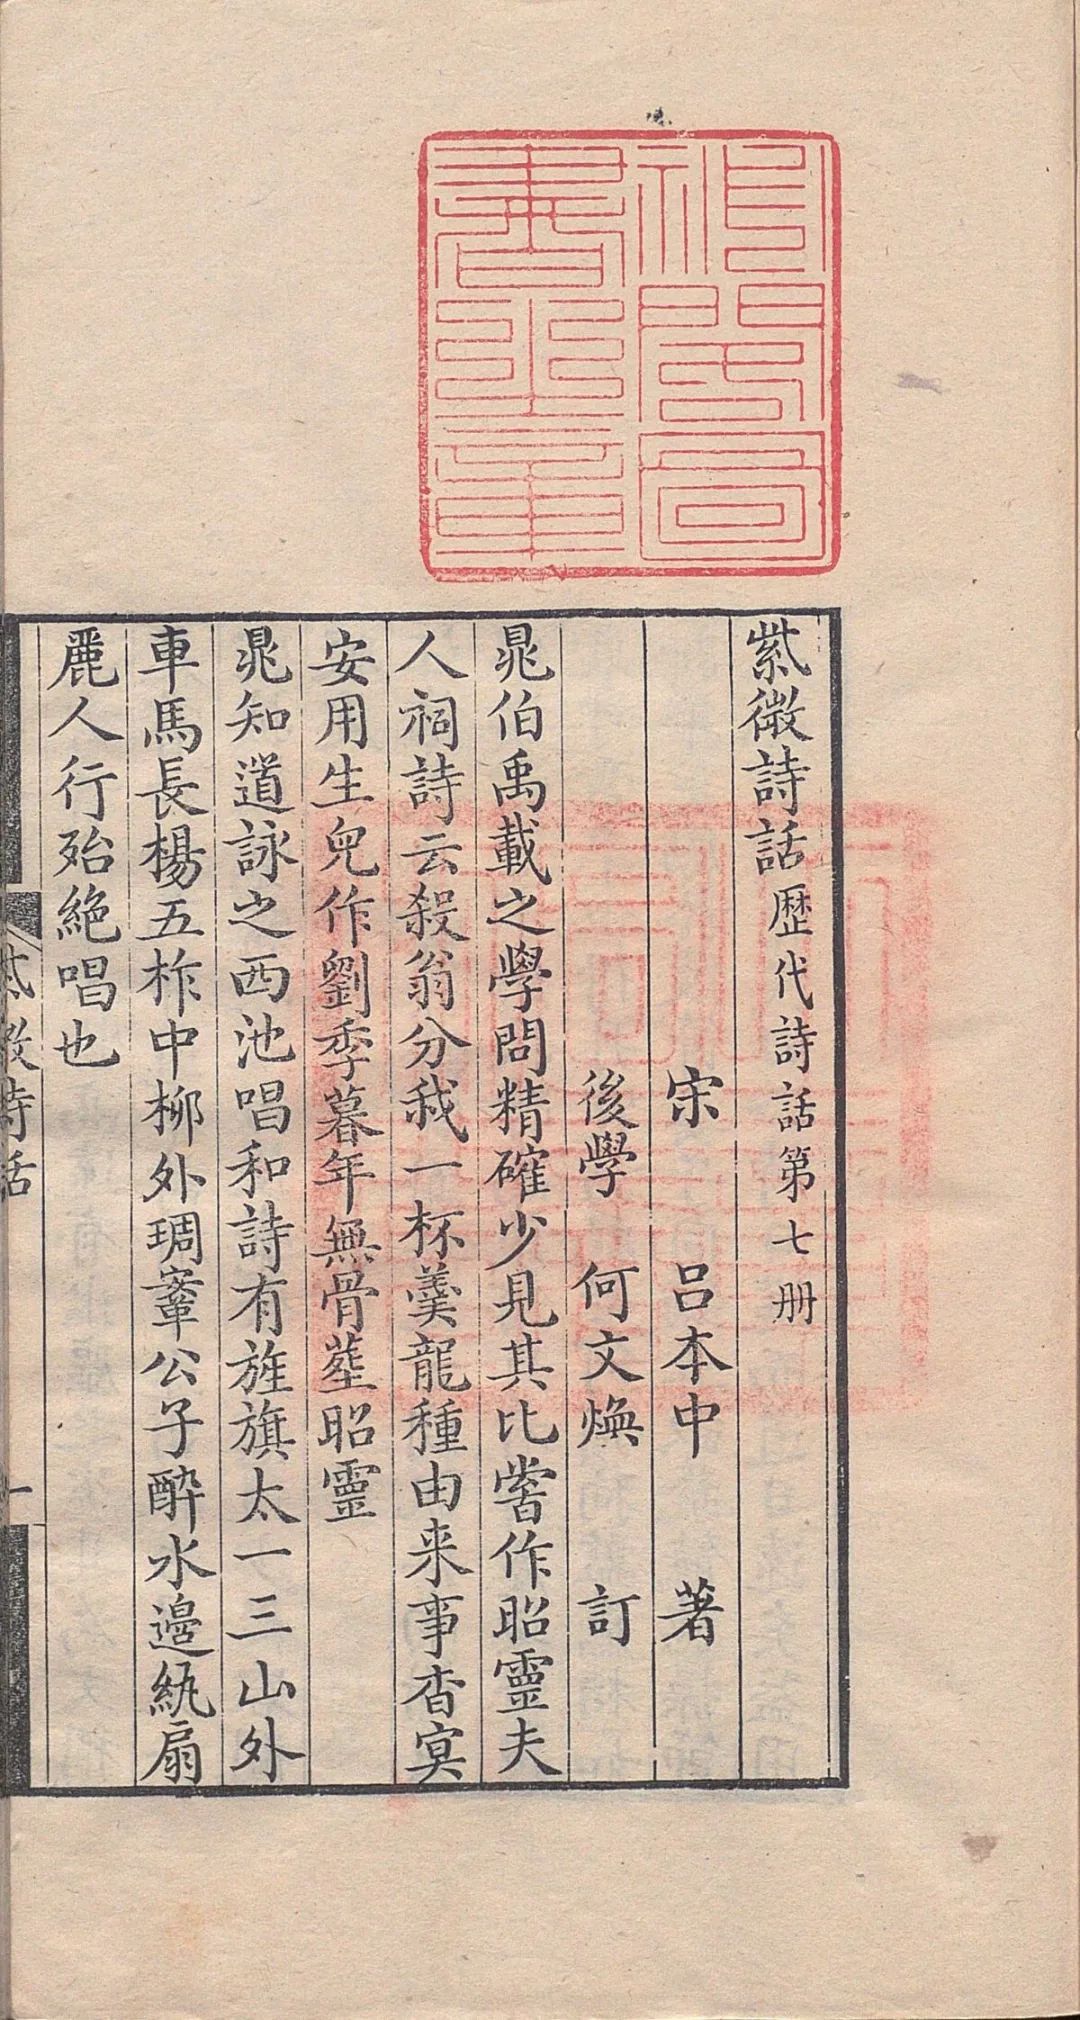 紫微詩話歷代詩話第七册
宋 呂本中 著
後學 何文煥 訂
晁伯禹載之學問精確少見其比嘗作昭靈夫
人祠詩云殺翁分我一杯羹龍種由来事杳冥
安用生兒作劉季暮年無骨葬昭靈
晁知道詠之西池唱和詩有旌旗太一三山外
車馬長楊五柞中柳外琱鞌公子醉水邊紈扇
麗人行殆絶唱也
紫微詩話
一